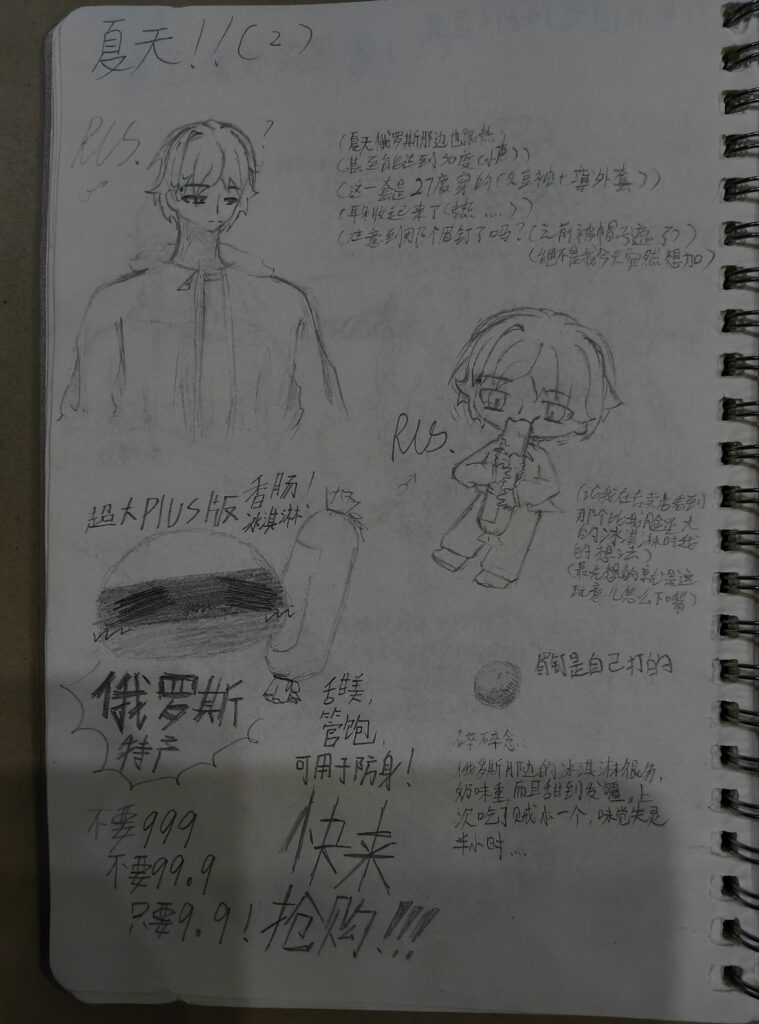 夏天!!(2)
RUS.
♂
?
(夏天俄罗斯那边也很热)
(甚至能达到30度(小声))
(这一套是27度穿的(短袖+薄外套))
(耳朵收起来了(热....))
(注意到那个眉钉了吗?(之前被帽子遮了))
(绝不是我今天突然想加)
RUS.
♂
超大PlUS版
香肠!
冰淇淋!
(论我在古卖店看到
那个比我脸还大
的冰淇淋时我
的想法)
(最先想的就是这
玩意儿怎么下嘴)
俄罗斯
特产
甜美,
管饱,
可用于防身!
眉钉是自己打的
碎碎念:
俄罗斯那边的冰淇淋很多,
奶味重,而且甜到发腻。上
次吃了贼小一个,味觉失灵
半小时....
不要999
不要99.9
只要9.9!
快来
抢购!!!